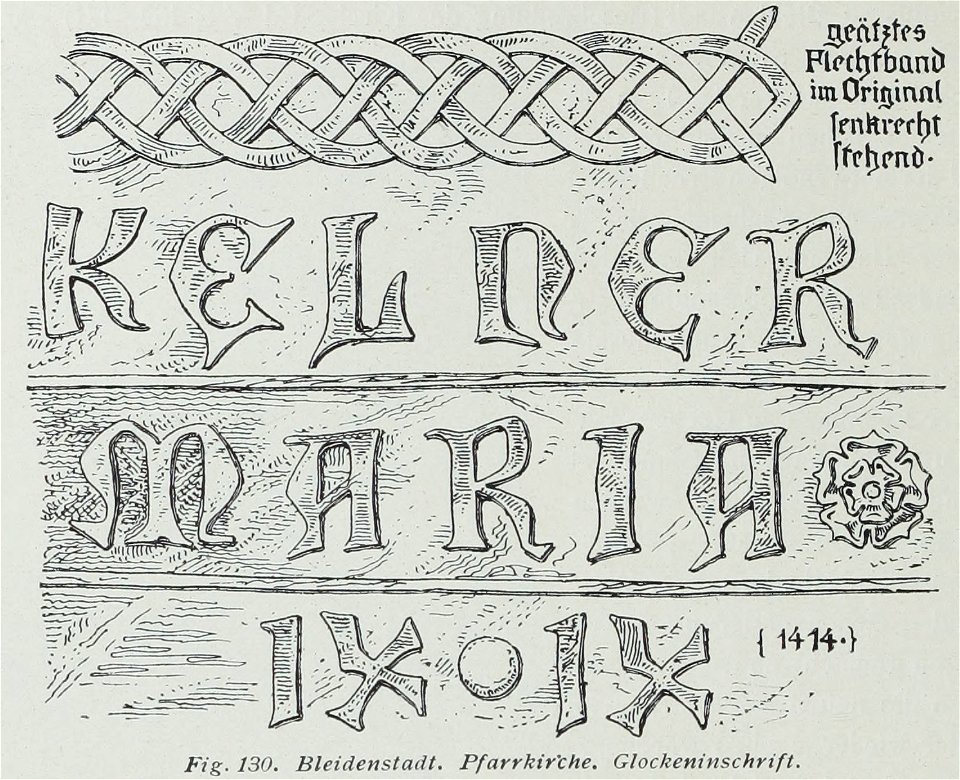 geätztes
Flechtband
im Original
ſenkrecht
ſtehend.
KELNER
MARIA
IX • IX
{1414.}
Fig. 130. Bleidenstadt. Pfarrkirche. Glockeninschrift.